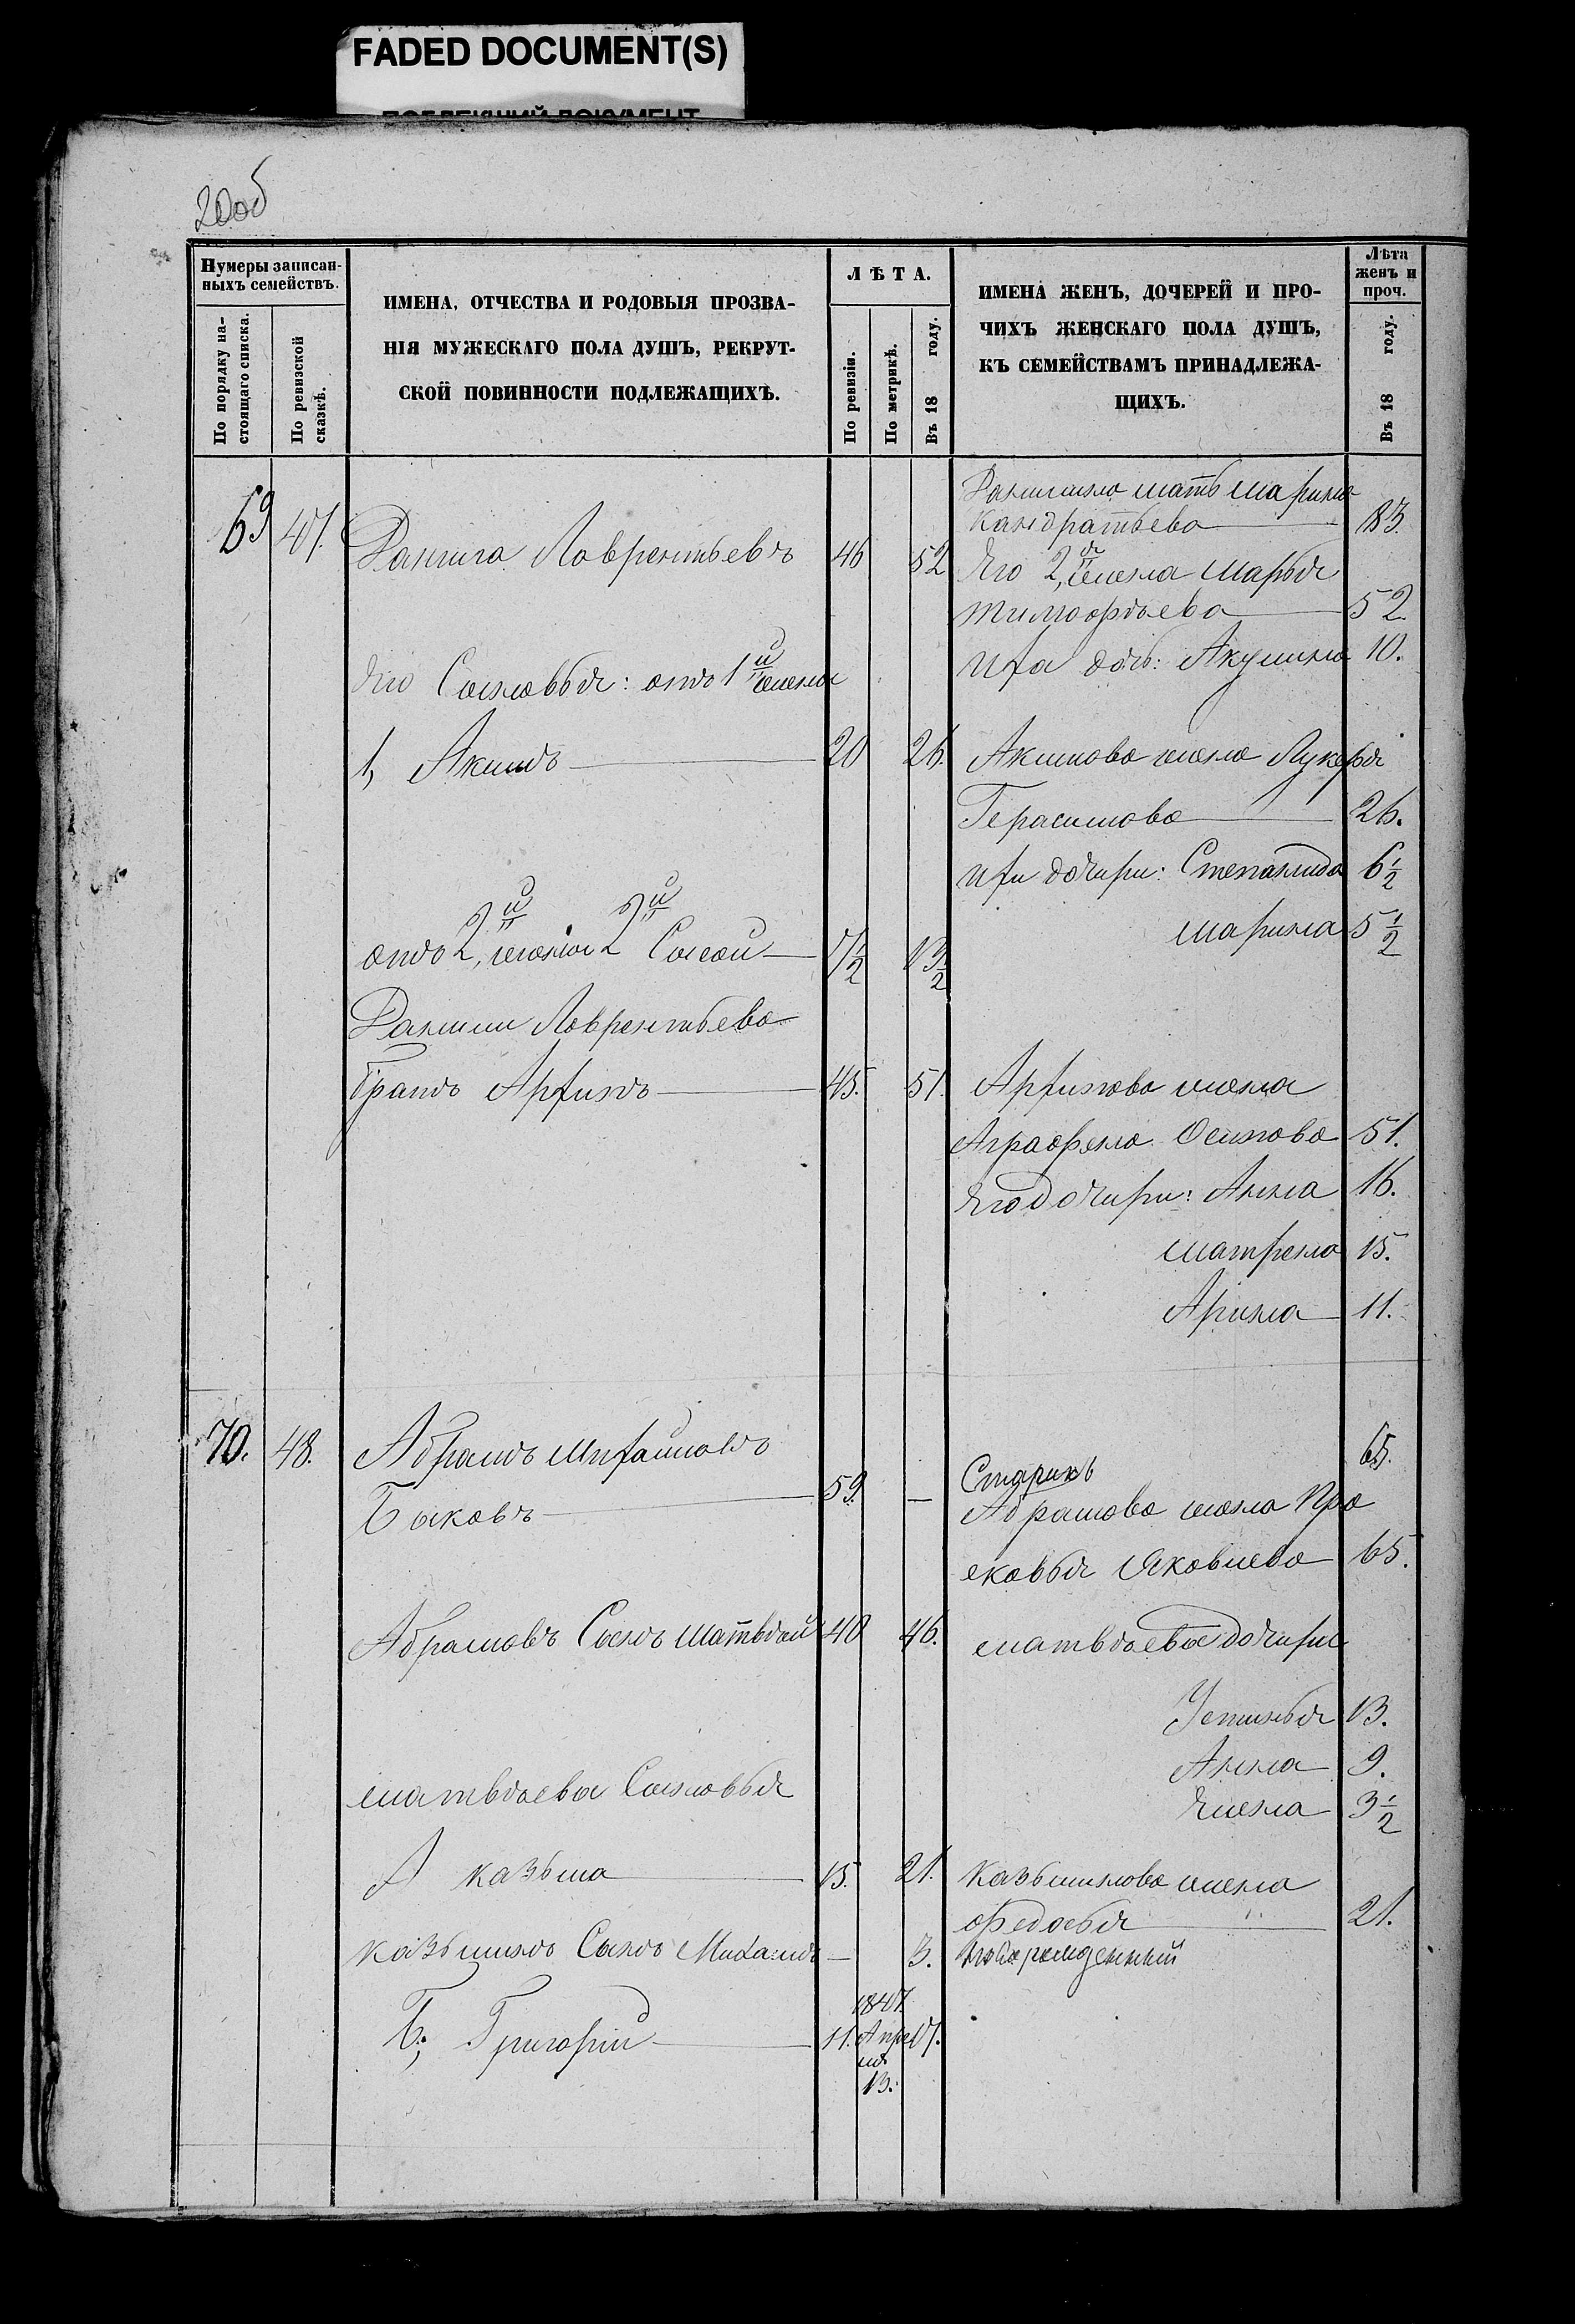 FADED DOCUMENT(S)
200б
Нумеры записан-
ныхъ семействъ.
По порядку на-
стоящаго списка.
По ревизской
сказкѣ.
ИМЕНА, ОТЧЕСТВА И РОДОВЫЯ ПРОЗВА-
НІЯ МУЖЕСКАГО ПОЛА ДУШЪ, РЕКРУТ-
СКОЙ ПОВИННОСТИ ПОДЛЕЖАЩИХЪ.
ЛѢТА.
По ревизіи.
По метрикѣ.
Въ 18 году.
ИМЕНА ЖЕНЪ, ДОЧЕРЕЙ И ПРО-
ЧИХЪ ЖЕНСКАГО ПОЛА ДУШЪ,
КЪ СЕМЕЙСТВАМЪ ПРИНАДЛЕЖА-
ЩИХЪ.
Лѣта
женъ и
проч.
Въ 18 году.
Данилина мать Марина
Кандратьева 83.
69 47. Данила Лаврентьевъ 46 52
Его 2я жена Марья
Тимофѣева 52.
Ихъ дочь: Акулина 10.
Его Сыновья: отъ 1й жены
1, Акимъ 20 26.
Акимова жена Лукерья
Герасимова 26.
Ихъ дочири: Степанида 6 1/2
Марина 5 1/2
отъ 2й жены 2й Сысой 7 1/2 13 1/2
Данилы Лаврентьева
братъ Архипъ 45. 51.
Архипова жена
Аграфена Осипова 51.
Его дочири: Анна 16.
Матрена 15.
Арина 11.
70. 48. Абрамъ Михайловъ
Быковъ 59. —
Старикъ 65.
Абрамова жена Пра
сковья Яковлева 65.
Абрамовъ Сынъ Матвѣй 40 46.
Матвѣевы дочири
Устинья 13.
Анна 9.
Елена 3 1/2
Матвѣевы Сыновья
А Казьма 15. 21.
Казьмина жена
Федосья 21.
Казьминъ Сынъ Михаилъ — 3. новорожденный
Б; Григорій 11. 1847 Апреля 13. 17.